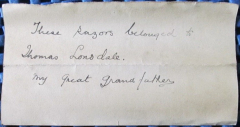 These Razors belonged to
Thomas Lonsdale.
My Great Grandfather